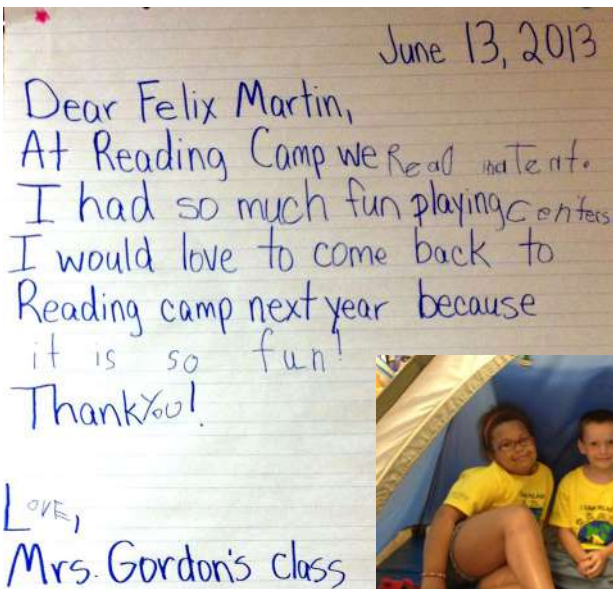 June 13, 2013
Dear Felix Martin,
At Reading Camp we Read ina Tent.
I had so much fun playing centers
I would love to come back to
Reading camp next year because
it is so fun!
Thank You!
Love,
Mrs. Gordon's class